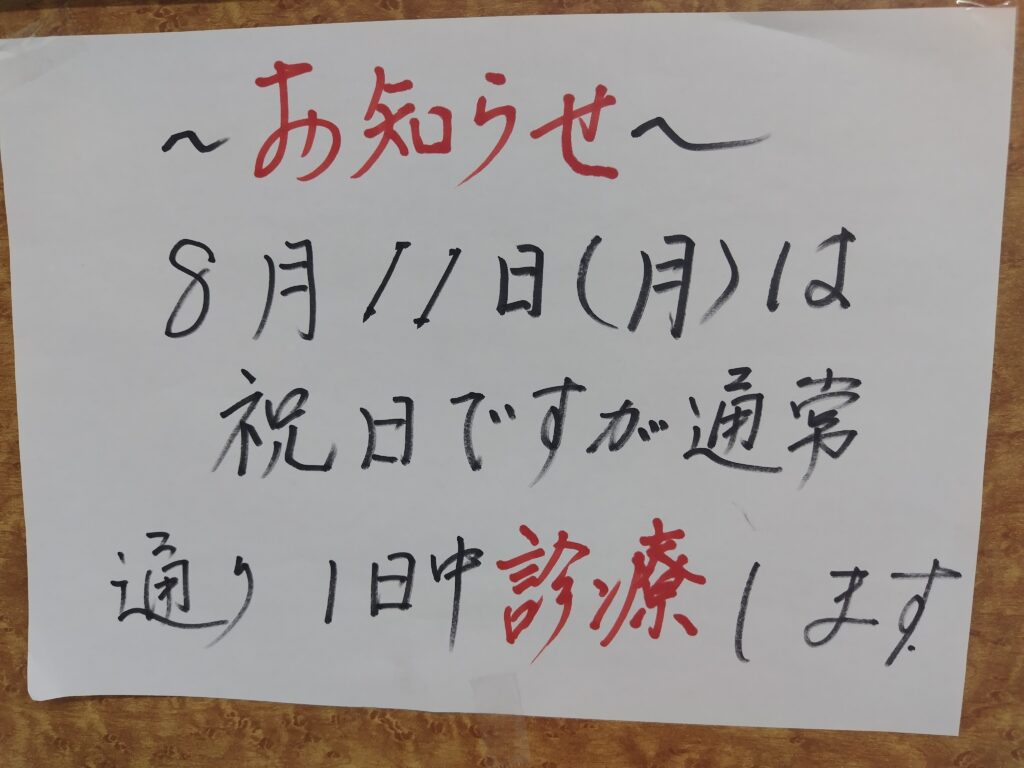 ~お知らせ~
8月11日(月)は
祝日ですが通常
通り1日中診療します